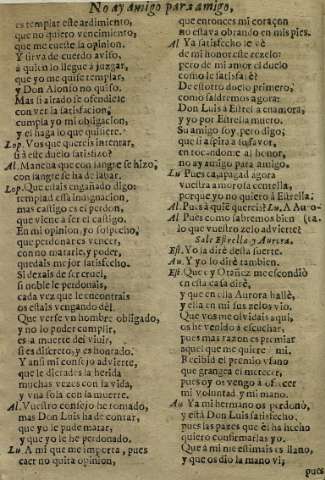 No ay amigo para amigo,
es templar este ardimiento,
que no quiero vencimiento,
que me cueste la opinion.
Y sirva de cuerdo aviso,
a quien lo llegue a juzgar,
que yo me quise templar,
y Don Alonso no quiso.
Mas si airado se ofendiere
con ver la satisfacion,
cumpla yo mi obligacion,
y el haga lo que quisiere.
Lop. Vos que quereis intentar,
si à este duelo satisfizo?
Al. Mancha que con sangre se hizo,
con sangre se ha de labar.
Lop. Que estais engañado digo:
templad essa indignacion,
mas castigo es el perdon,
que viene a ser el castigo.
En mi opinion, yo sospecho,
que perdonar es vencer,
con no matarle, y poder,
quedais mejor satisfecho.
Si dexais de ser cruel,
si noble le perdonais,
cada vez que le encontrais
os estais vengando dèl.
Que verse vn hombre obligado,
y no lo poder cumplir,
es la muerte del viuir,
si es discreto, y es honrado.
Y ansi mi consejo advierte,
que le dierades la herida
muchas vezes con la vida,
y vna sola con la muerte.
Al. Vuestro consejo he tomado,
mas Don Luis ha de contar,
que yo le pude matar,
y que yo le he perdonado.
Lu. A mi que me importa, pues
caer no quita opinion,
que entonces mi coraçon
no estava obrando en mis pies.
Al. Ya satisfecho se vè
de mi honor este rezelo:
pero de mi amor el duelo
como le satisfarè?
De estotro duelo primero,
como saldremos agora:
Don Luis a Estrella enamora,
y yo por Estrella muero.
Su amigo soy, pero digo,
que si aspira a su favor,
en tocandome al honor,
no ay amigo para amigo.
Lu Pues ea, apagad agora
vuestra amorosa centella,
porque yo no quiero à Estrella.
Al. Pues à quiè quereis? Lu. A Auro-
Al Pues como sabremos bien (ra.
lo que vuestro zelo advierte?
Sale Estrella y Aurora.
Est. Yo la dirè desta suerte.
Au. Y yo lo dirè tambien.
Est. Que oy Otañez me escondiò
en esta casa dirè,
y que en ella Aurora hallè,
y ella en mi sus zelos viò.
Que vos me olvidais aqui,
os he venido à escuchar,
pues mas razon es premiar
aquel que me quiere mi.
Recibid el premio vfano
que grangea el merecer,
pues oy os vengo à ofrecer
mi voluntad y mi mano.
Au Ya mi hermano os perdonò,
y està Don Luis satisfecho.
pues las pazes que èl ha hecho
quiero confirmarlas yo.
Que à mi me estimais es llano,
y que os diò la mano vi;
pues